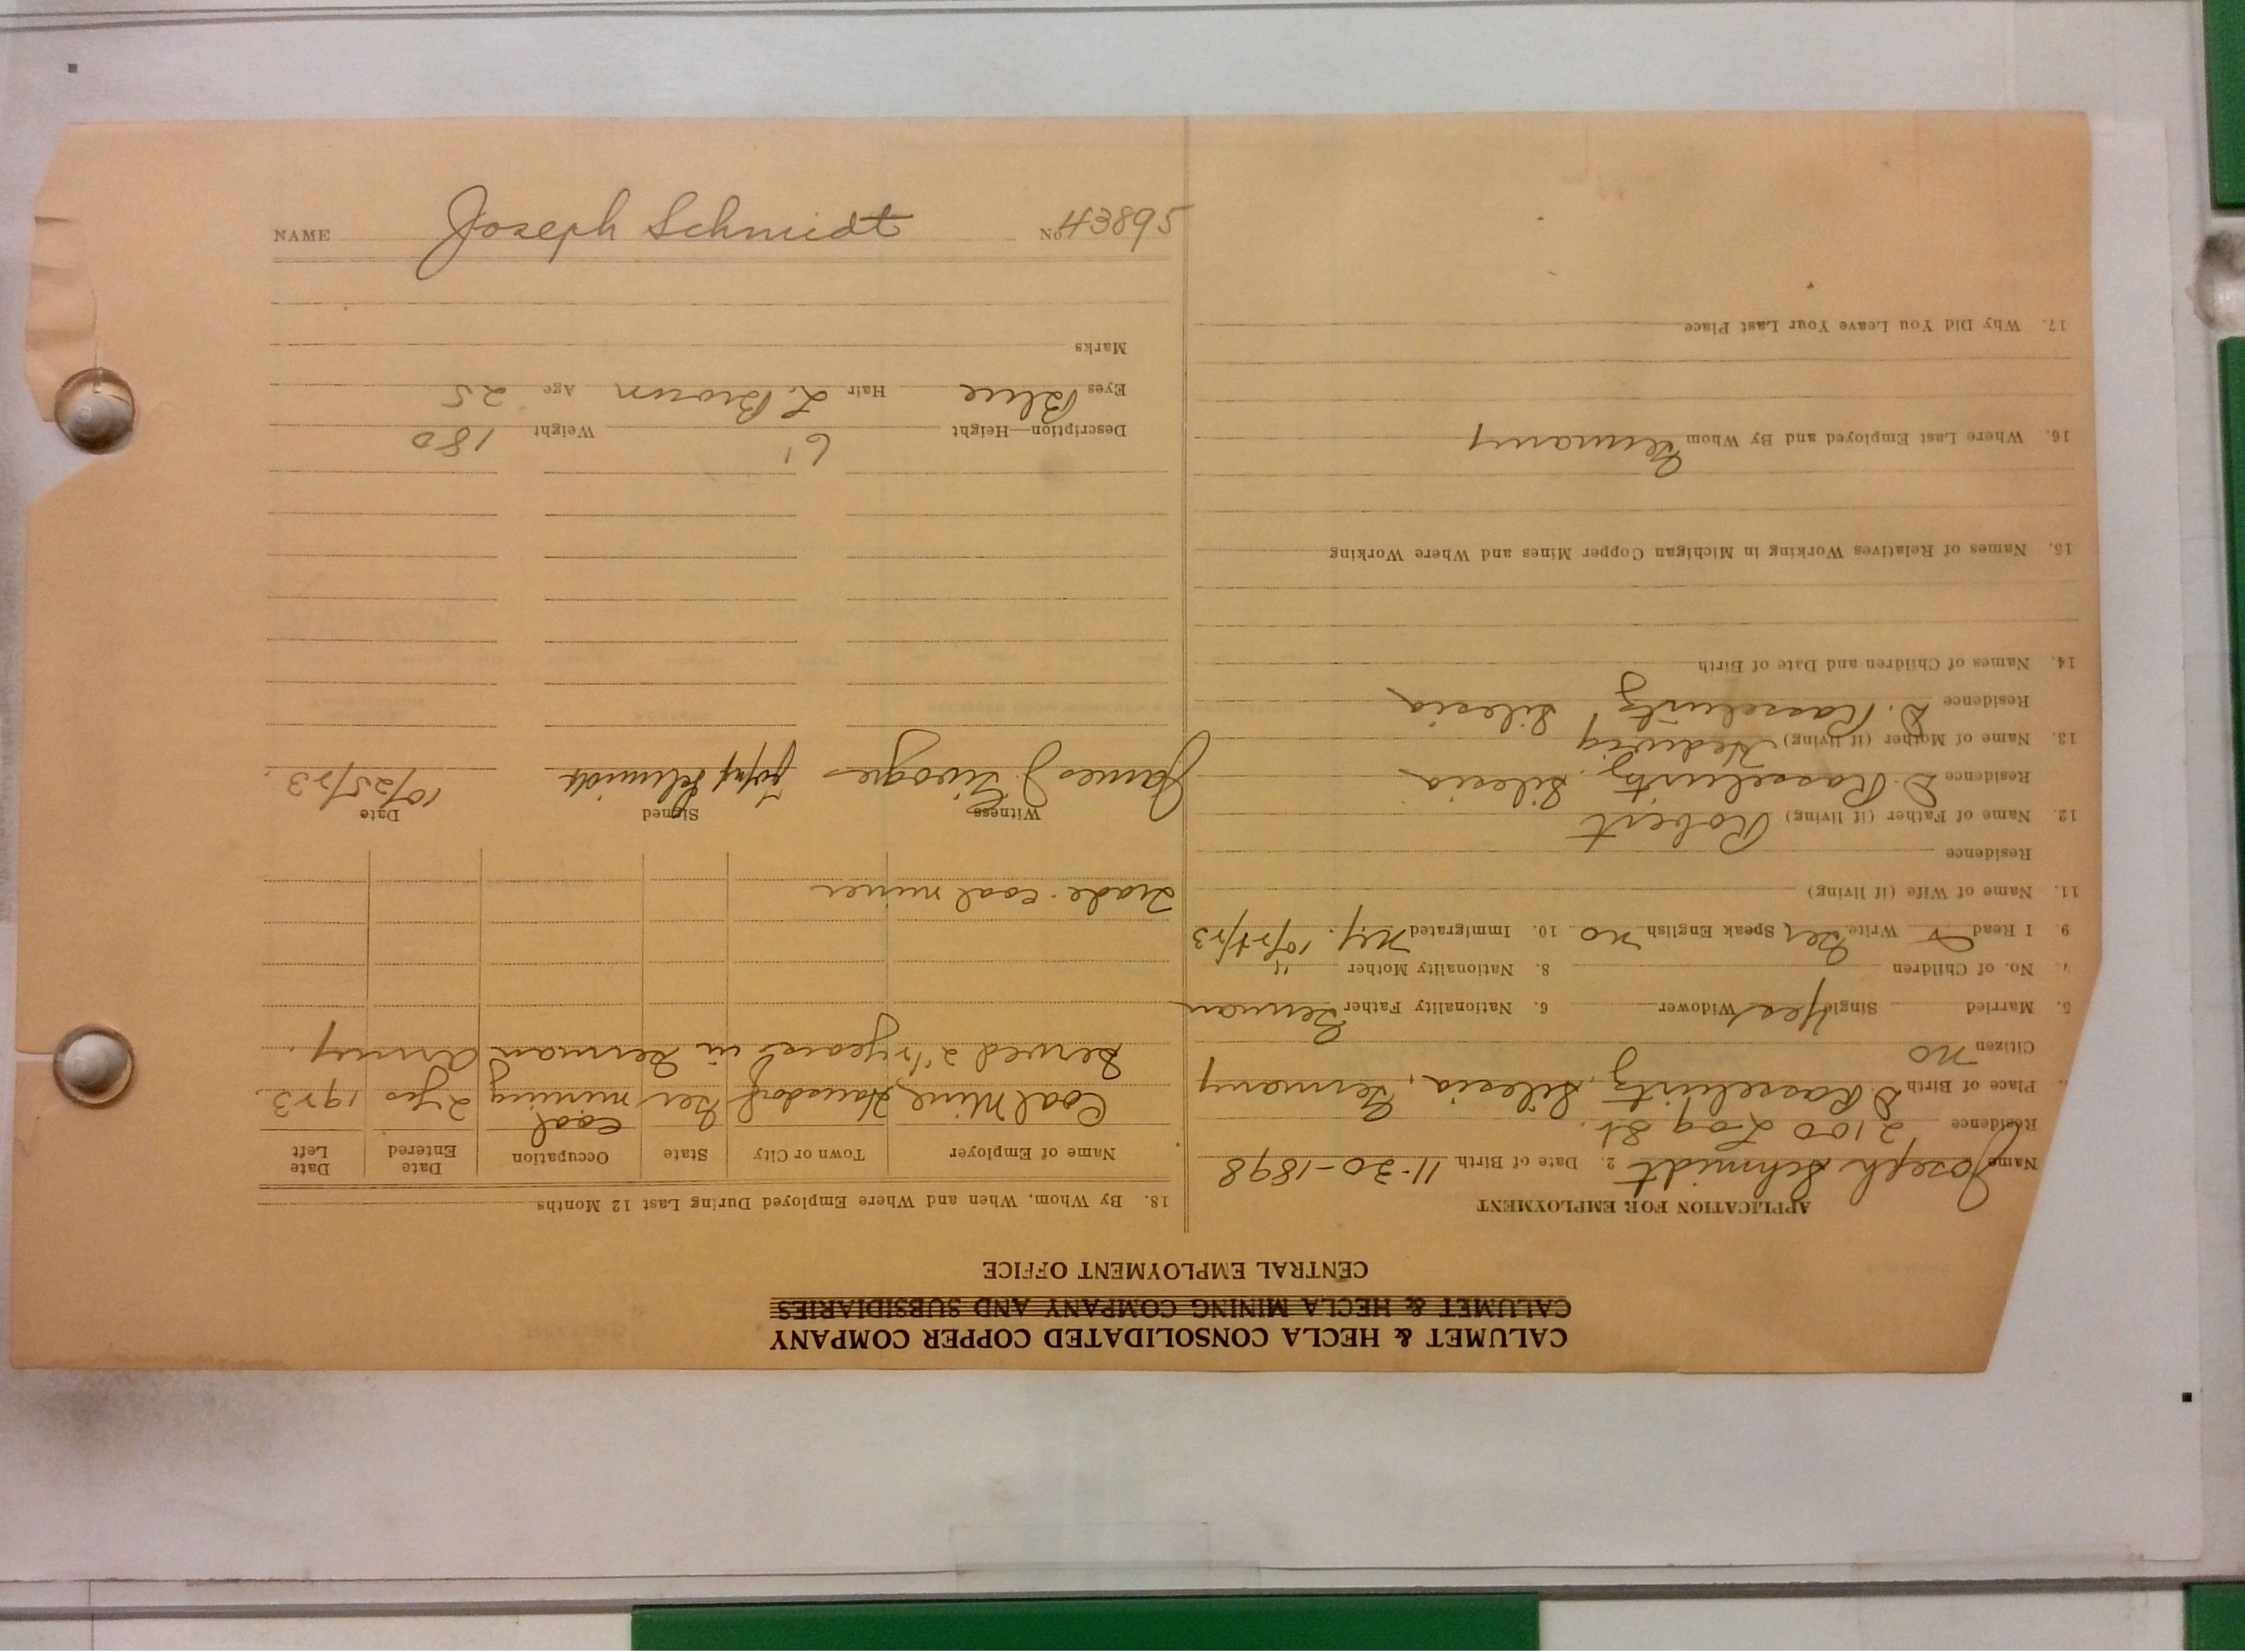 CALUMET & HECLA CONSOLIDATED COPPER COMPANY
CALUMET & HECLA MINING COMPANY AND SUBSIDIARIES
CENTRAL EMPLOYMENT OFFICE
APPLICATION FOR EMPLOYMENT
Name Joseph Schmidt 2. Date of Birth 11-30-1898
Residence 2100 Log St.
Place of Birth D. Rasselwitz, Silesia, Germany
Citizen no
5. Married Single Yes Widower 6. Nationality Father German
No. of Children 8. Nationality Mother "
9. I Read Write Ger Speak English no 10. Immigrated N.Y. 10/24/23
11. Name of Wife (if living)
Residence
12. Name of Father (if living) Robert
Residence D. Rasselwitz, Silesia
13. Name of Mother (if living) Hedwig
Residence D. Rasselwitz, Silesia
14. Names of Children and Date of Birth
15. Names of Relatives Working in Michigan Copper Mines and Where Working
16. Where Last Employed and By Whom Germany
17. Why Did You Leave Your Last Place
18. By Whom, When and Where Employed During Last 12 Months
Name of Employer Town or City State Occupation Date Entered Date Left
Coal Mine, Hausdorf Ger coal mining 2 yrs 1923.
Served 2 1/2 years in German Army.
Trade - coal miner
Witness Signed Date
James J. Joseph Schmidt 10/25/23.
Description—Height 6' Weight 180
Eyes Blue Hair L. Brown Age 25
Marks
NAME Joseph Schmidt No. 43895